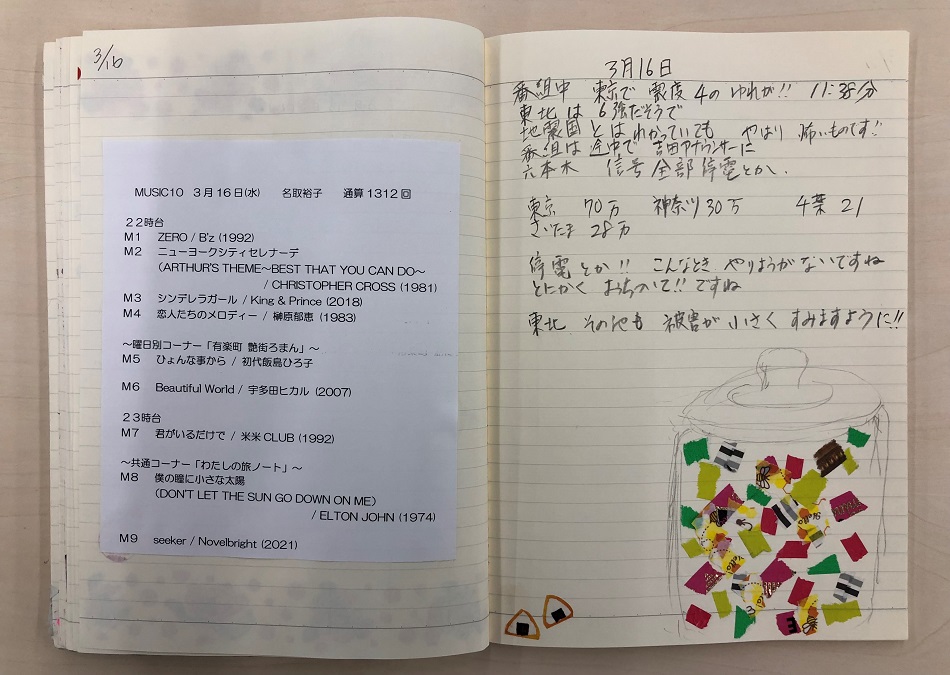 3/16
MUSIC10 3月16日(水) 名取裕子 通算1312回
22時台
M1 ZERO / B'z (1992)
M2 ニューヨークシティセレナーデ
(ARTHUR'S THEME～BEST THAT YOU CAN DO～
/ CHRISTOPHER CROSS (1981)
M3 シンデレラガール / King & Prince (2018)
M4 恋人たちのメロディー / 榊原郁恵 (1983)
～曜日別コーナー「有楽町 艶街ろまん」～
M5 ひょんな事から / 初代飯島ひろ子
M6 Beautiful World / 宇多田ヒカル (2007)
23時台
M7 君がいるだけで / 米米CLUB (1992)
～共通コーナー「わたしの旅ノート」～
M8 僕の瞳に小さな太陽
(DON'T LET THE SUN GO DOWN ON ME)
/ ELTON JOHN (1974)
M9 seeker / Novelbright (2021)
3月16日
番組中 東京で 震度4の ゆれが!! 11:38分
東北は 6強だそうで
地震国 とは わかっていても やはり 怖いものです!!
番組は 途中で 吉田アナウンサーに
六本木 信号 全部 停電とか.
東京 70万 神奈川 30万 千葉 21
さいたま 28万
停電とか!! こんなとき やりようが ないですね
とにかく おちついて!! ですね
東北 その他も 被害が 小さく すみますように!!